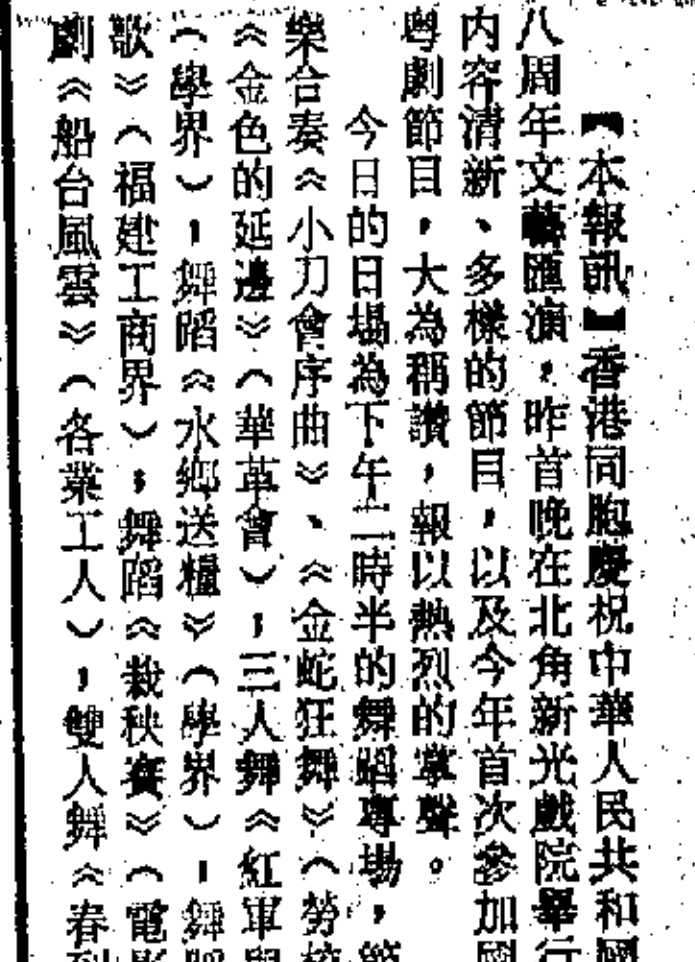 【本報訊】香港同胞慶祝中華人民共和國
八周年文藝匯演，昨首晚在北角新光戲院舉行
內容清新、多樣的節目，以及今年首次參加國
粵劇節目，大為稱讚，報以熱烈的掌聲。
今日的日場為下午二時半的舞蹈專場，節
樂合奏《小刀會序曲》、《金蛇狂舞》（勞校
《金色的延邊》（華革會），三人舞《紅軍與
（學界），舞蹈《水鄉送糧》（學界），舞蹈
歌》（福建工商界），舞蹈《栽秧賽》（電影
劇《船台風雲》（各業工人），雙人舞《春到